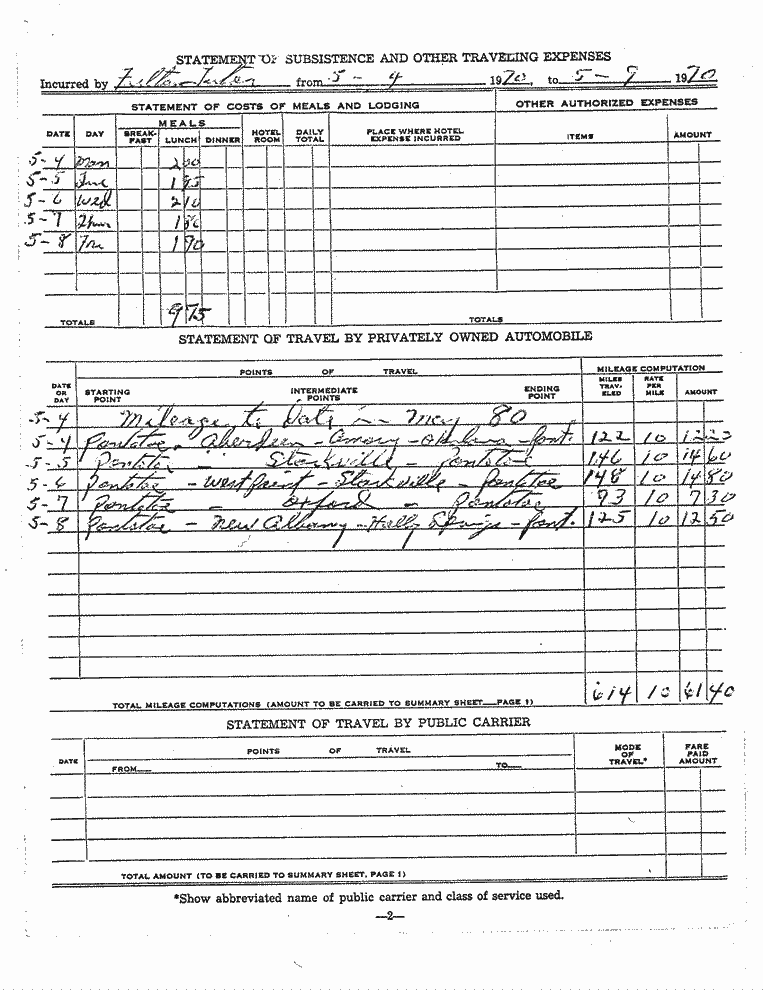 STATEMENT OF SUBSISTENCE AND OTHER TRAVELING EXPENSES
Incurred by Fulton from 5 - 4 1970, to 5 - 9 1970
STATEMENT OF COSTS OF MEALS AND LODGING OTHER AUTHORIZED EXPENSES
DATE DAY MEALS BREAK-FAST LUNCH DINNER HOTEL ROOM DAILY TOTAL PLACE WHERE HOTEL EXPENSE INCURRED ITEMS AMOUNT
5-4 Mon 2 00
5-5 Tue 1 75
5-6 Wed 2 10
5-7 Thur
5-8 Fri 1 90
TOTALS 9 75 TOTALS
STATEMENT OF TRAVEL BY PRIVATELY OWNED AUTOMOBILE
DATE OR DAY POINTS OF TRAVEL MILEAGE COMPUTATION
STARTING POINT INTERMEDIATE POINTS ENDING POINT MILES TRAV-ELED RATE PER MILE AMOUNT
5-4 Mileage to Date in May 80
5-4 Pontotoc - Aberdeen - Amory - Okolona - Pont. 122 10 12 20
5-5 Pontotoc - Starkville - Pontotoc 146 10 14 60
5-6 Pontotoc - West Point - Starkville - Pontotoc 148 10 14 80
5-7 Pontotoc - Oxford - Pontotoc 73 10 7 30
5-8 Pontotoc - New Albany - Holly Springs - Pont. 125 10 12 50
TOTAL MILEAGE COMPUTATIONS (AMOUNT TO BE CARRIED TO SUMMARY SHEET—PAGE 1) 614 10 61 40
STATEMENT OF TRAVEL BY PUBLIC CARRIER
DATE POINTS OF TRAVEL MODE OF TRAVEL* FARE PAID AMOUNT
FROM— TO—
TOTAL AMOUNT (TO BE CARRIED TO SUMMARY SHEET, PAGE 1)
*Show abbreviated name of public carrier and class of service used.
—2—